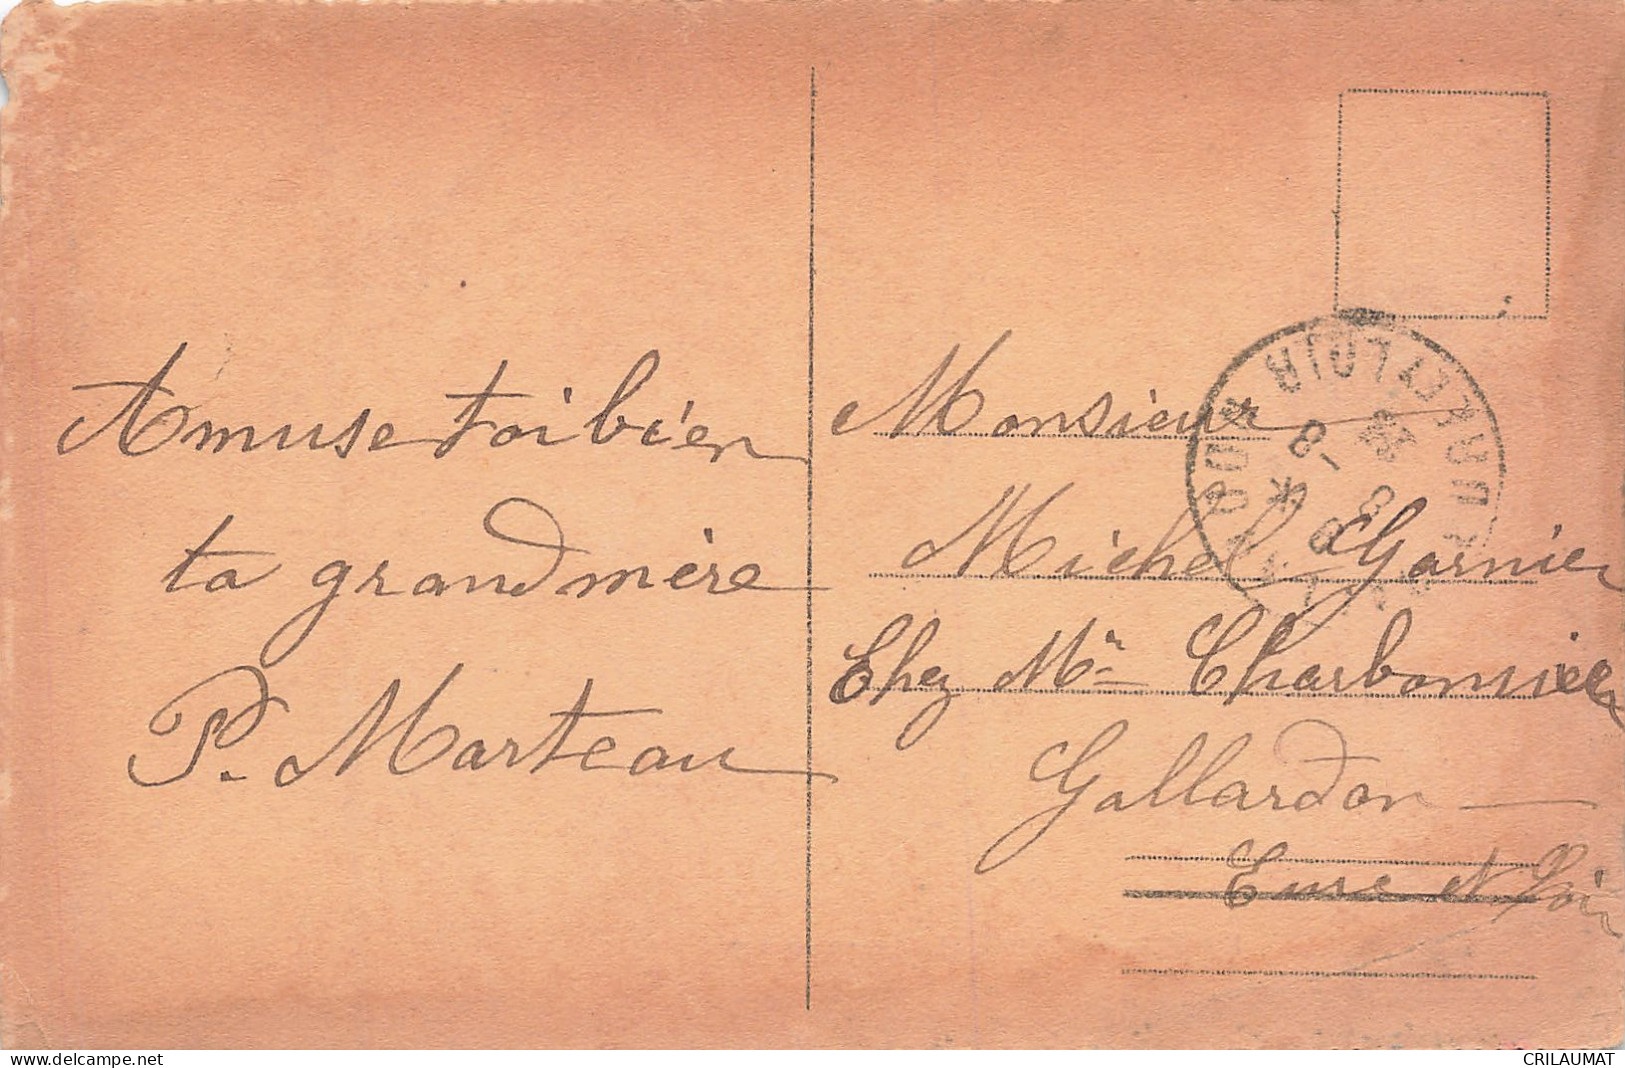 Amuse toi bien
ta grandmère
P. Marteau
Monsieur
Michel Garnier
Chez Mr Charbonnier
Gallardon
Eure et Loir
www.delcampe.net
CRILAUMAT